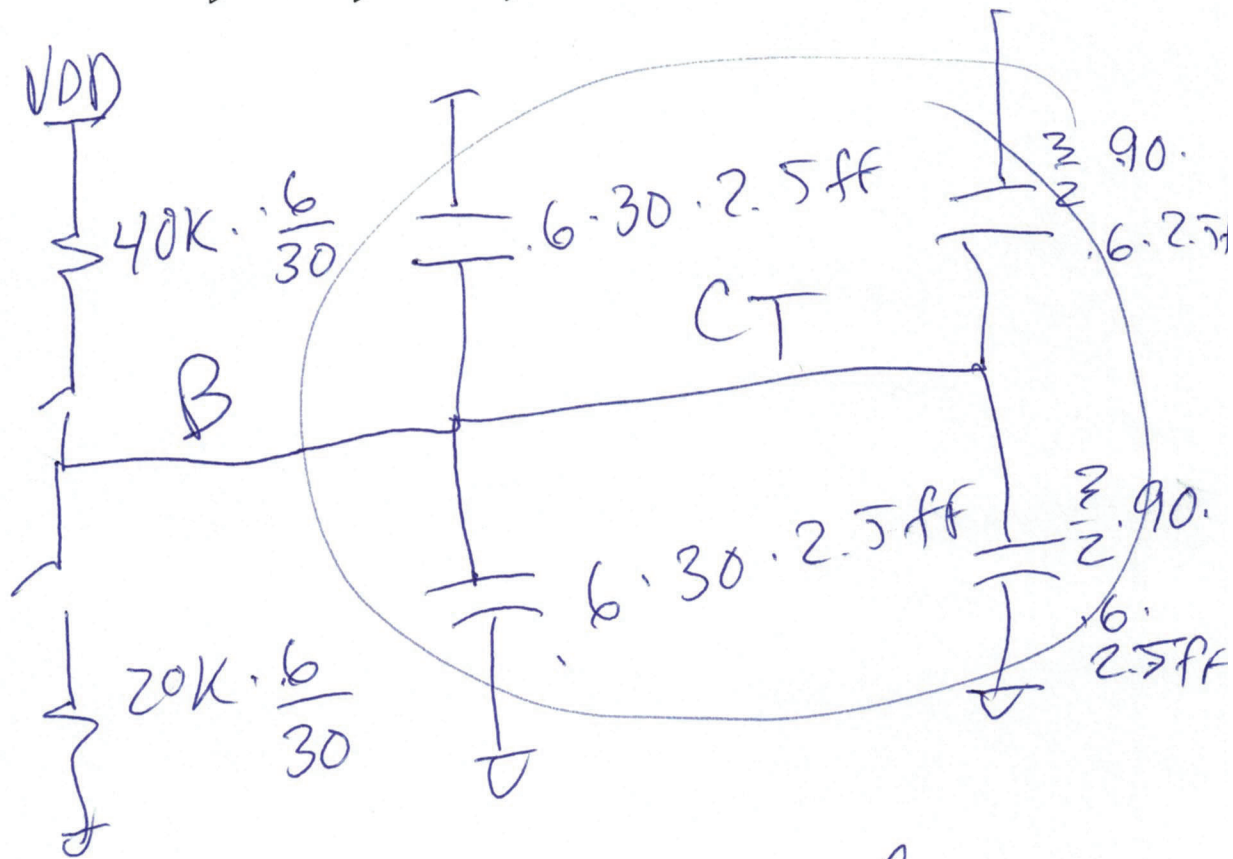 VDD
40K · .6/30
.6 · 30 · 2.5ff
3/2 90.
.6 · 2.5f
CT
B
6 · 30 · 2.5ff
3/2 · 90.
.6 ·
2.5ff
20K · .6/30